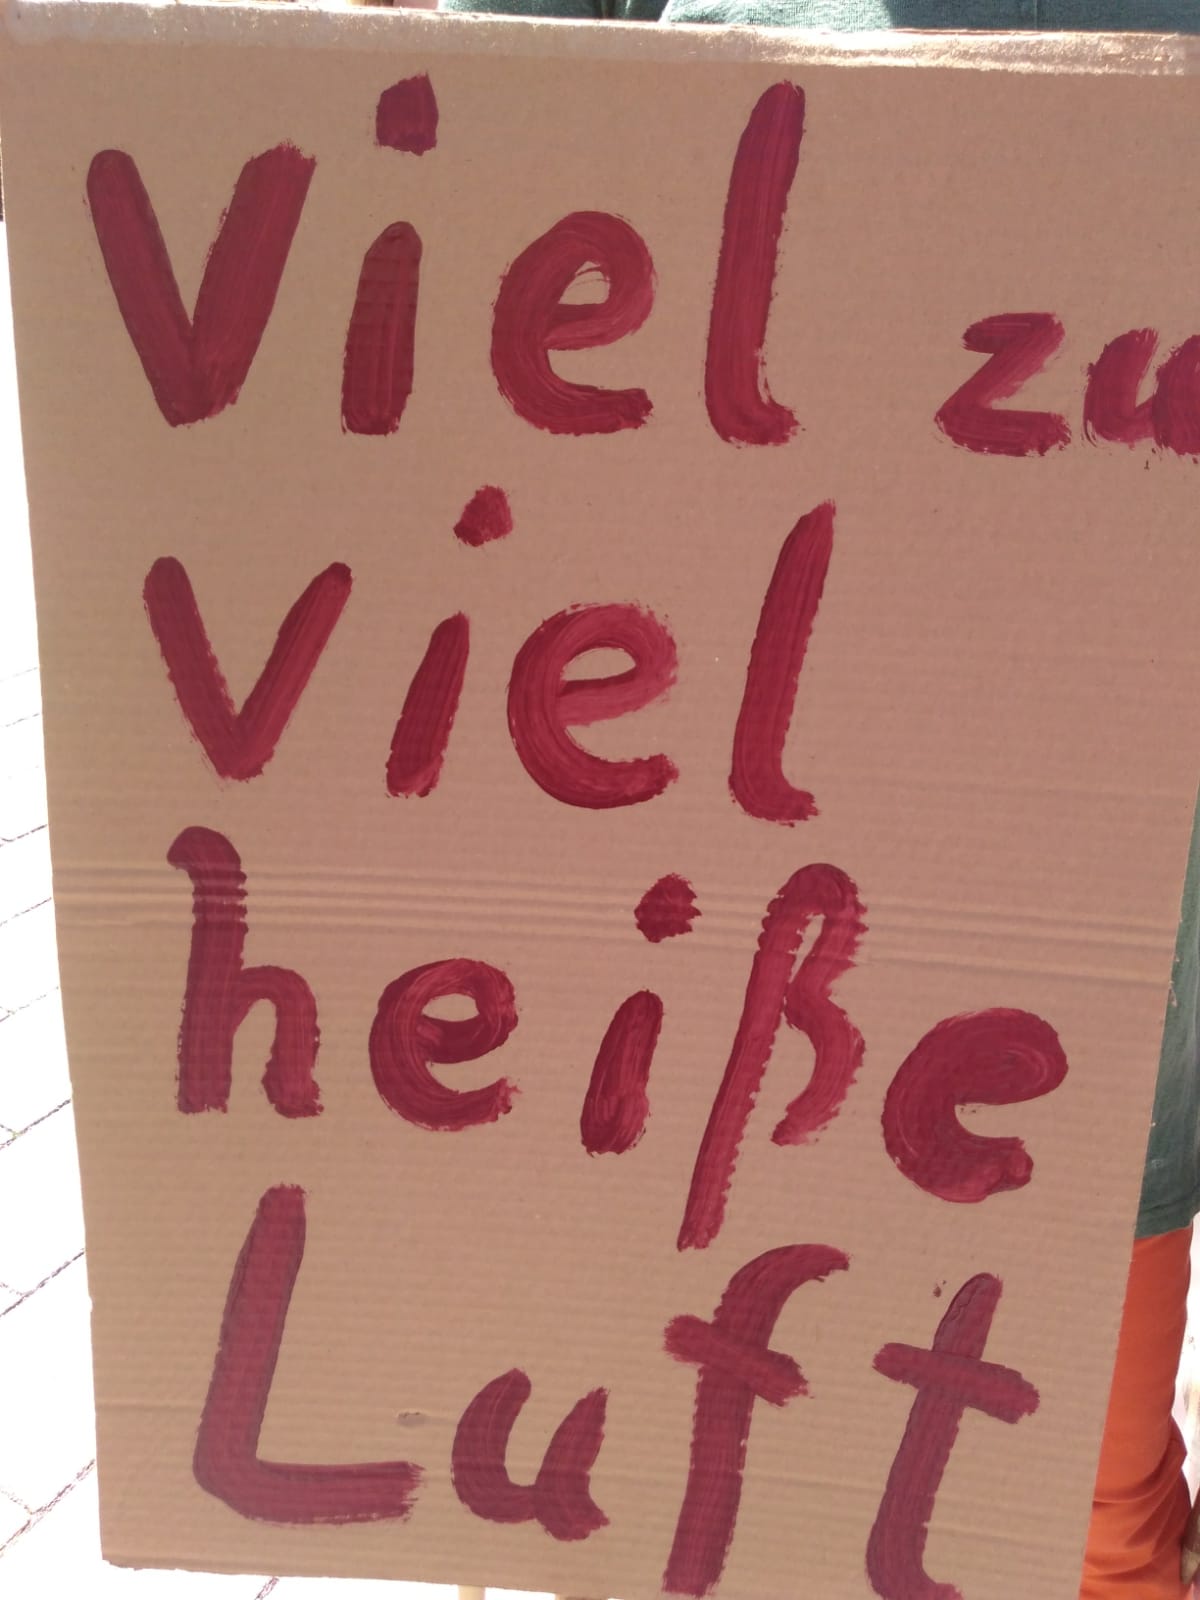 Viel zu
viel
heiße
Luft